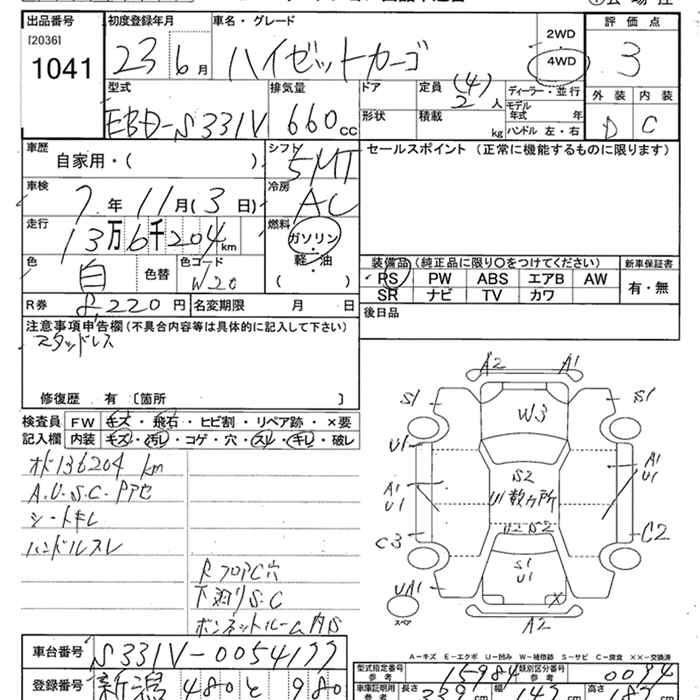 出品番号 初度登録年月 車名・グレード 評価点
[2036]
1041
23年 6月 ハイゼットカーゴ 2WD 4WD 3
型式 排気量 ドア 定員 (4) 2人 ディーラー・並行 外装 内装
EBD-S331V 660cc 形状 積載 kg モデル年式 年 D C
ハンドル 左・右
車歴 シフト セールスポイント (正常に機能するものに限ります)
自家用・( ) 5MT
車検 冷房
7年 11月(3日) AC
走行 燃料
13万6千204km ガソリン
軽・油
( )
色 白 色替 色コード W20
装備品 (純正品に限り○をつけてください) 新車保証書
PS PW ABS エアB AW 有・無
SR ナビ TV カワ
R券 8,220円 名変期限 月 日 後日品
注意事項申告欄 (不具合内容等は具体的に記入して下さい)
スタッドレス
修復歴 有 〔箇所 〕
検査員 FW キズ・飛石・ヒビ割・リペア跡・×要
記入欄 内装 キズ・汚レ・コゲ・穴・スレ・キレ・破レ
オド136204km
A.U.S.C.Pアセ
シートキレ
ハンドルスレ
RフロアC穴
下廻りS.C
ボンネットルーム内S
A2 A1
S1 W3 S1
U1
A1 U1 S2 A1 U1
U数ヵ所
C3 U2 S2 C2
S1 U1
UA1 X
スペア A2
A-キズ E-エクボ U-凹み W-補修跡 S-サビ C-腐食 ××-交換済
車台番号 S331V-0054177
型式指定番号 参考 15984 類別区分番号 参考 0094
登録番号 新潟 480 と 980
車庫証明用 参考 長さ 339cm 幅 147cm 高さ 187cm